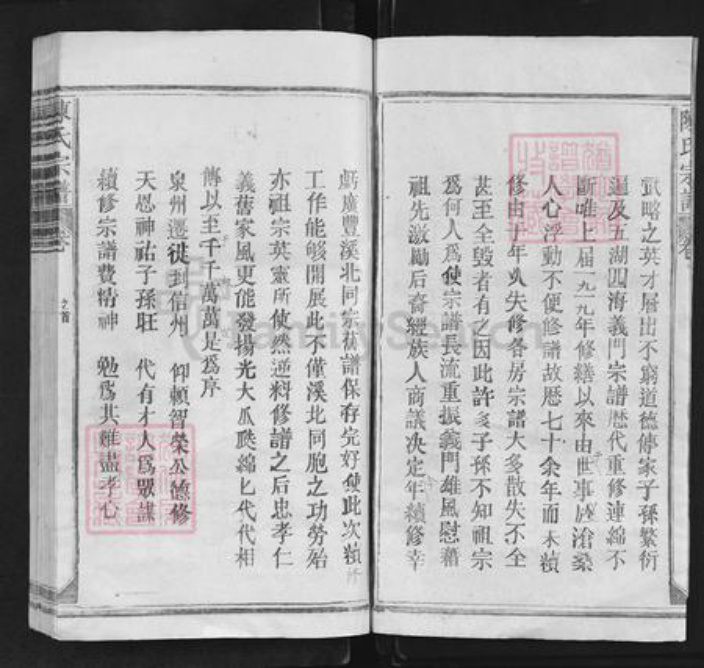 武略之英才層出不窮道德傳家子孫繁衍
遍及五湖四海義門宗譜歷代重修連綿不
斷唯上届一九一九年修繕以來由世事歷滄桑
人心浮動不便修譜故歷七十余年而未續
修由于年久失修各房宗譜大多散失不全
甚至全毀者有之因此許多子孫不知祖宗
爲何人爲使宗譜長流重振義門雄風慰藉
祖先激勵后裔經族人商議决定年續修幸
虧廣豐溪北同宗舊譜保存完好使此次續修
工作能够開展此不僅溪北同胞之功勞殆
亦祖宗英靈所使然逆料修譜之后忠孝仁
義舊家風更能發揚光大瓜瓞綿匕代代相
傳以至千千萬萬是爲序
泉州遷徙到信州 仰賴智榮公德修
天恩神祐子孫旺 代有才人爲眾謀
續修宗譜費精神 勉爲其難盡孝心
陳氏宗譜 卷
陳氏宗譜 卷
FamilySearch